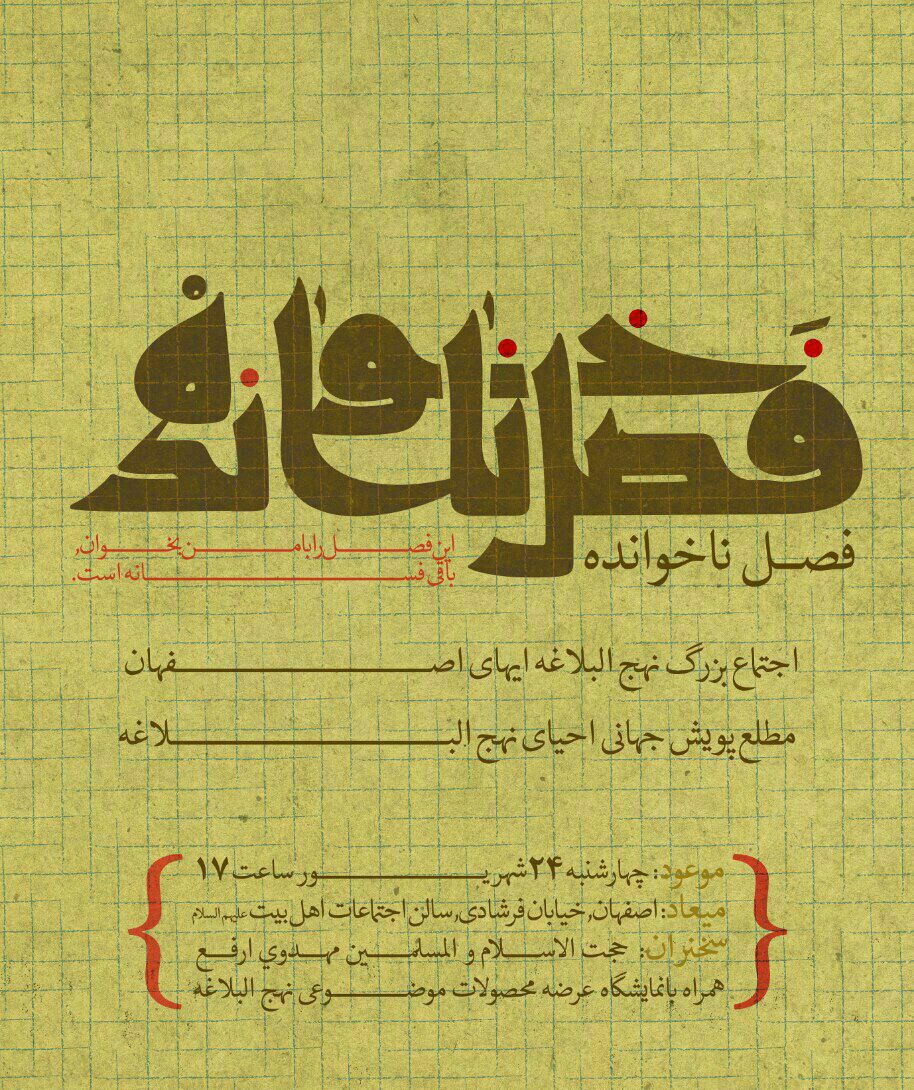 فصل ناخوانده
فصل ناخوانده
این فصل را با من بخوان,
باقی فسانه است.
اجتماع بزرگ نهج البلاغه ایهای اصفهان
مطلع پویش جهانی احیای نهج البلاغه
موعود: چهارشنبه ۲۴ شهریور ساعت ۱۷
میعاد: اصفهان, خیابان فرشادی, سالن اجتماعات اهل بیت علیهم السلام
سخنران: حجت الاسلام و المسلمین مهدوي ارفع
همراه با نمایشگاه عرضه محصولات موضوعی نهج البلاغه